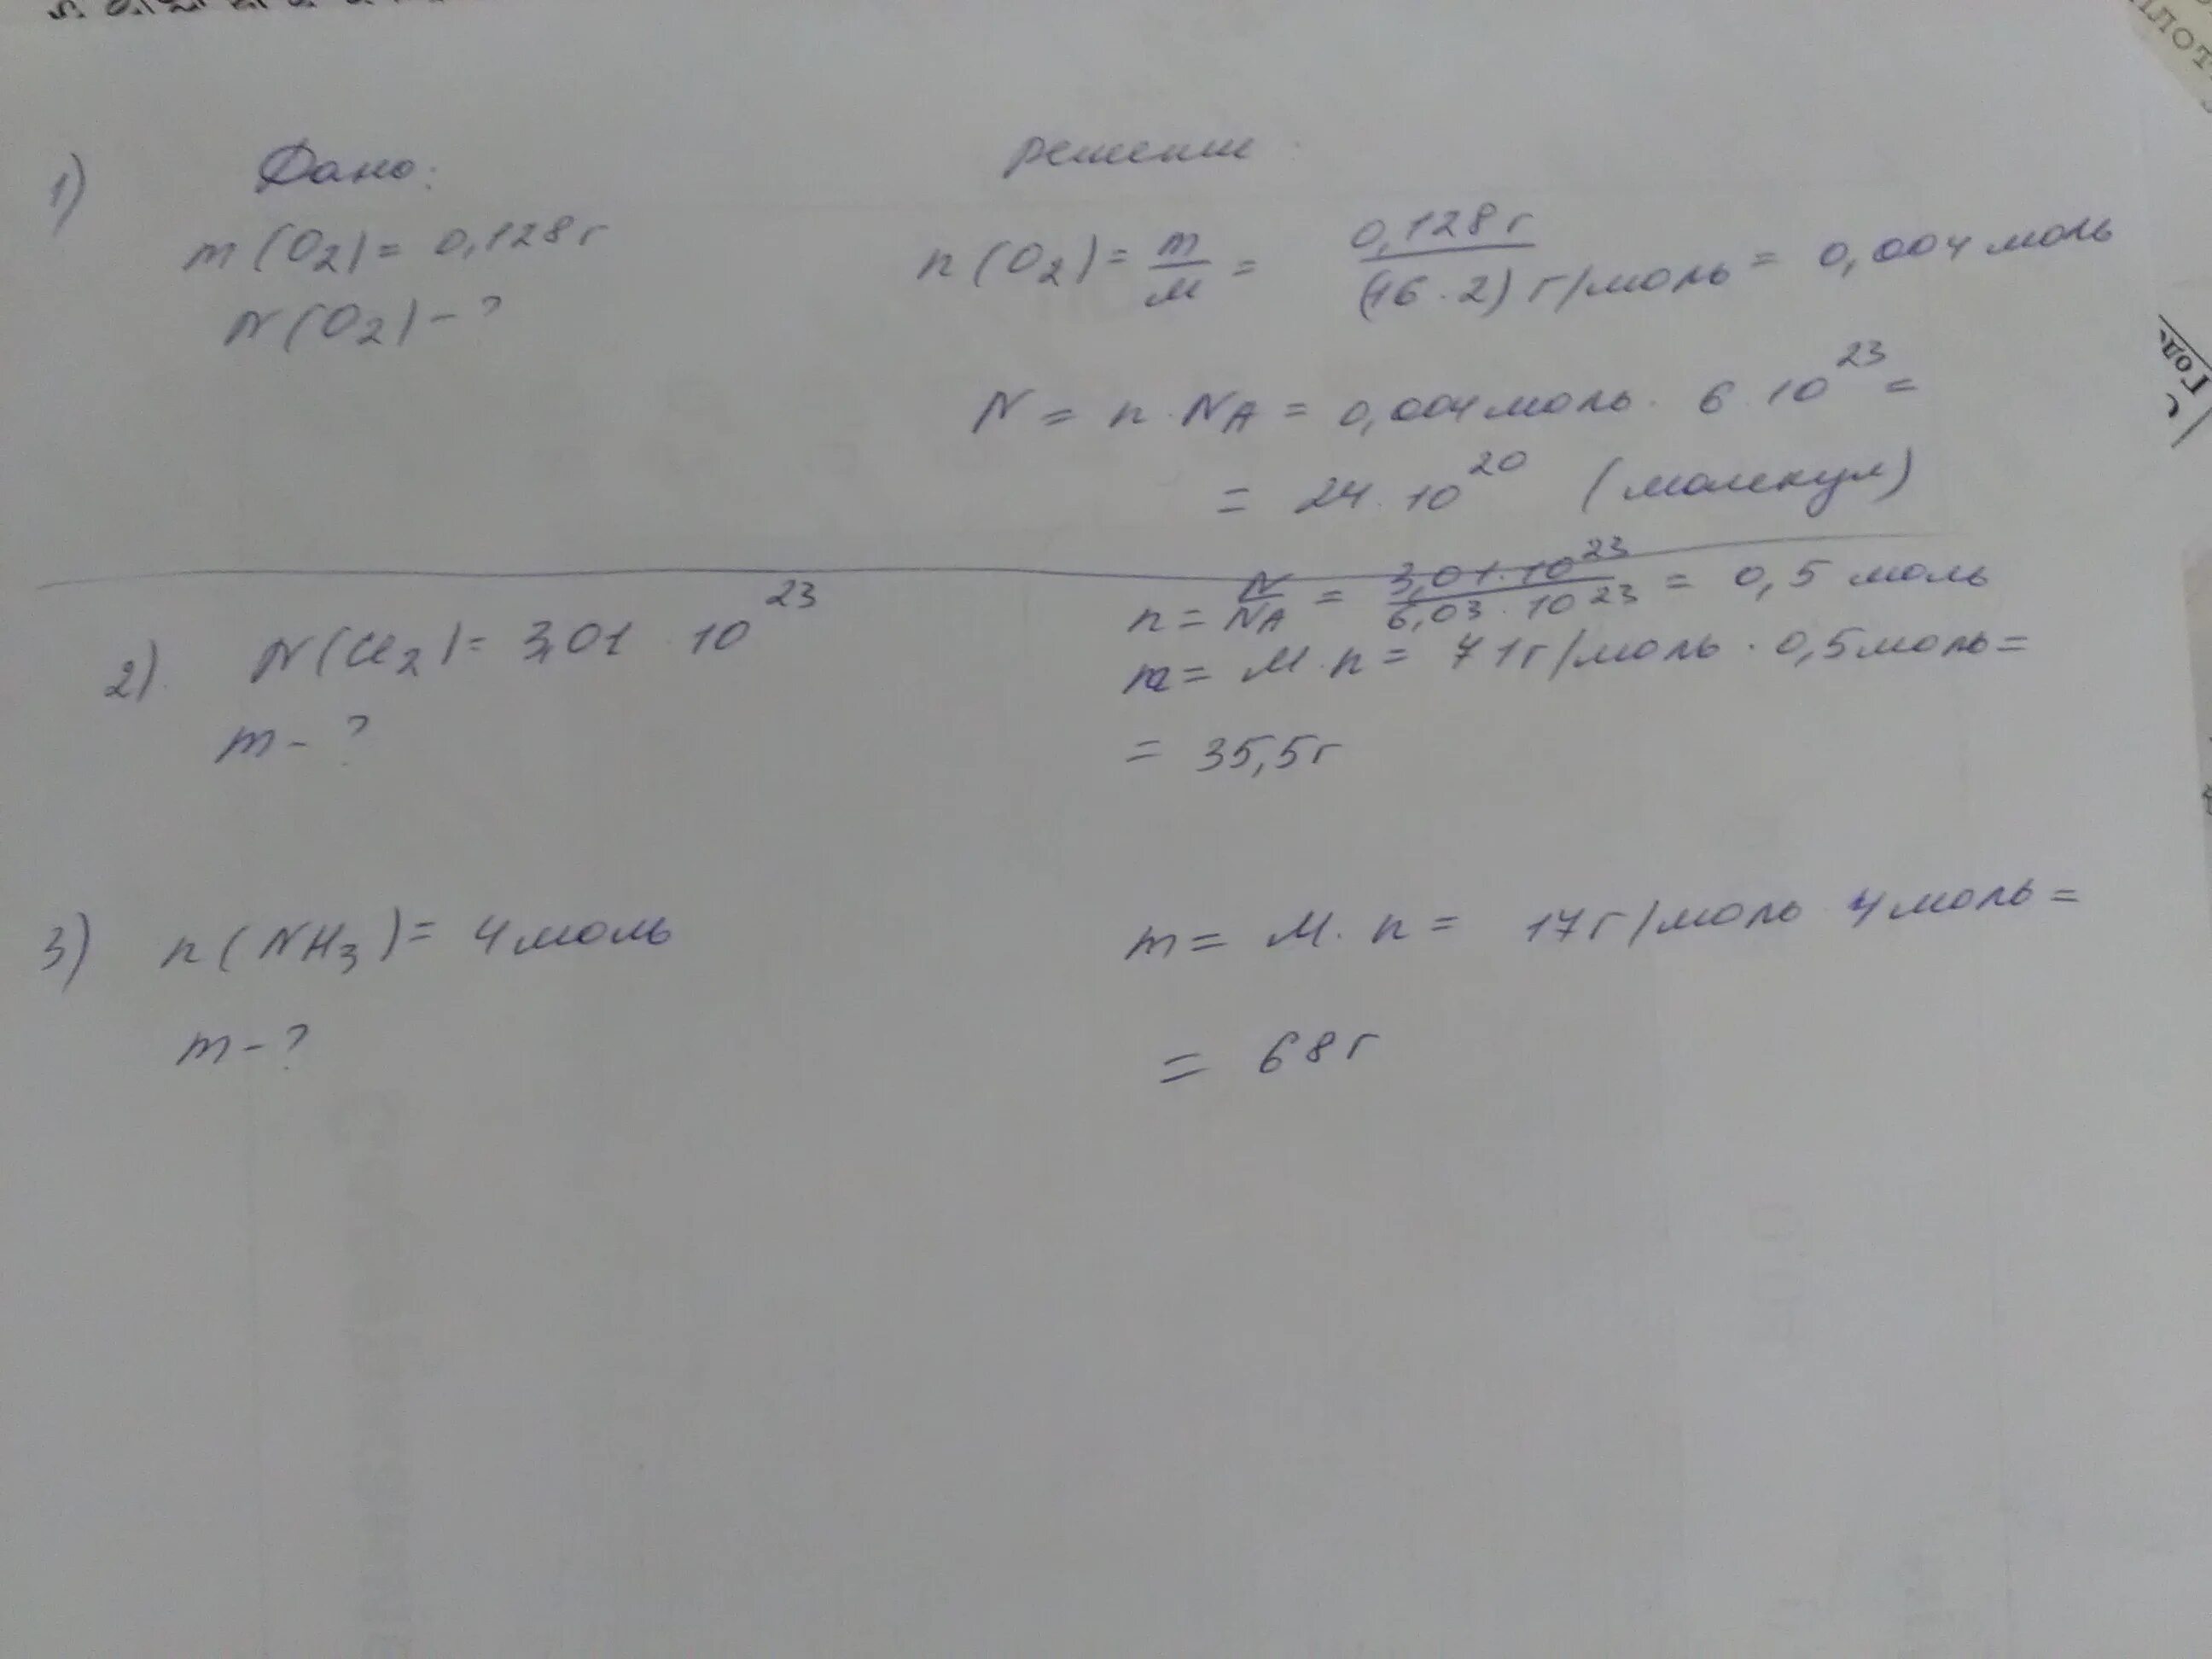 1) Дано:
m (O2) = 0,128 г
N (O2) - ?
решение
n (O2) = m/M = 0,128 г / (16 · 2) г/моль = 0,004 моль
N = n · NA = 0,004 моль · 6 · 10^23 =
= 24 · 10^20 (молекул)
2) N (Cl2) = 3,01 · 10^23
m - ?
n = N/NA = 3,01 · 10^23 / 6,03 · 10^23 = 0,5 моль
m = M · n = 71 г/моль · 0,5 моль =
= 35,5 г
3) n (NH3) = 4 моль
m - ?
m = M · n = 17 г/моль 4 моль =
= 68 г
плот
Год